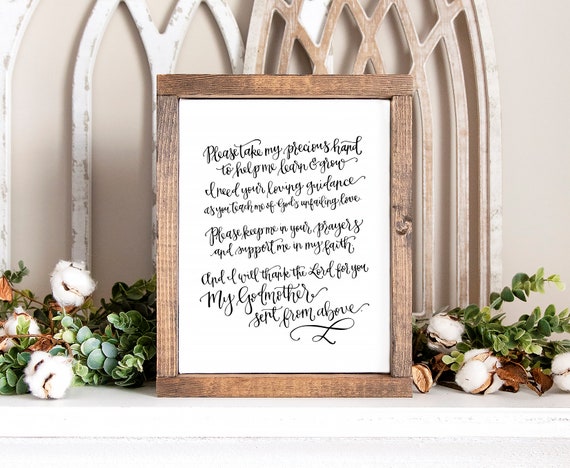 Please take my precious hand
to help me learn & grow
I need your loving guidance
as you teach me of God's unfailing love.
Please keep me in your prayers
and support me in my faith
And I will thank the Lord for you
My Godmother
sent from above.